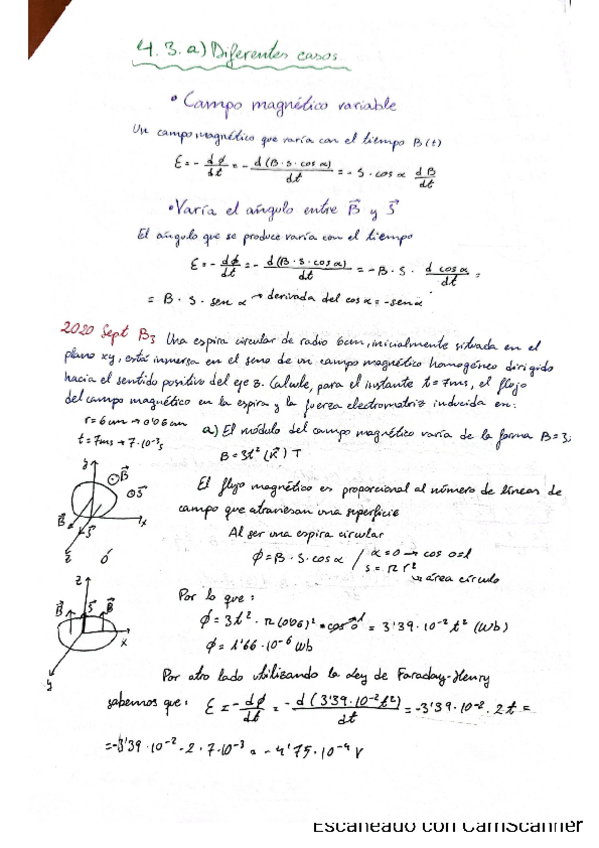 4.3.a) Diferentes casos
• Campo magnético variable
Un campo magnético que varía con el tiempo B(t)
ε = - dφ/dt = - d(B·S·cos α)/dt = - S·cos α dB/dt
• Varía el ángulo entre B⃗ y S⃗
El ángulo que se produce varía con el tiempo
ε = - dφ/dt = - d(B·S·cos α)/dt = - B·S· d cos α/dt =
= B·S·sen α → derivada del cos α = -sen α
2020 Sept B3 Una espira circular de radio 6cm, inicialmente situada en el
plano xy, está inmersa en el seno de un campo magnético homogéneo dirigido
hacia el sentido positivo del eje z. Calcule, para el instante t=7ms, el flujo
del campo magnético en la espira y la fuerza electromotriz inducida en:
r=6cm → 0'06cm
t=7ms → 7·10⁻³s
a) El módulo del campo magnético varía de la forma B=3
B=3t² (k⃗) T
y
B⃗
S⃗
B⃗
S⃗
x
z
El flujo magnético es proporcional al número de líneas de
campo que atraviesan una superficie
Al ser una espira circular
φ = B·S·cos α / α=0 → cos 0=1
S = π r²
→ área círculo
ó
z
B⃗ S⃗ B⃗
x
y
Por lo que:
φ = 3t² · π(0'06)² · cos 0 = 3'39·10⁻² t² (Wb)
φ = 1'66·10⁻⁶ Wb
Por otro lado utilizando la Ley de Faraday-Henry
sabemos que: ε = - dφ/dt = - d(3'39·10⁻²t²)/dt = -3'39·10⁻²·2t =
= -3'39·10⁻²·2·7·10⁻³ = -4'75·10⁻⁴ V
Escaneado con CamScanner